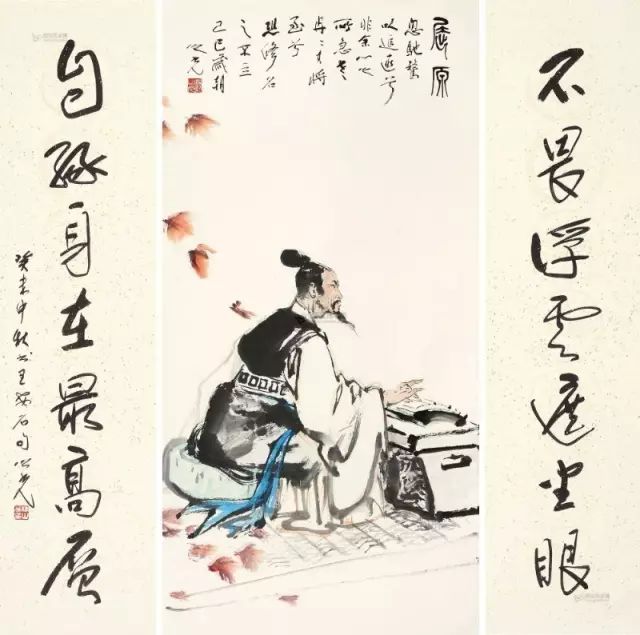 不畏浮雲遮望眼
屈原
忽馳騖
以追逐兮
非余心之
所急老
冉冉其將
至兮
恐修名
之不立
己巳歲朝
自緣身在最高層
癸未中秋书王安石句